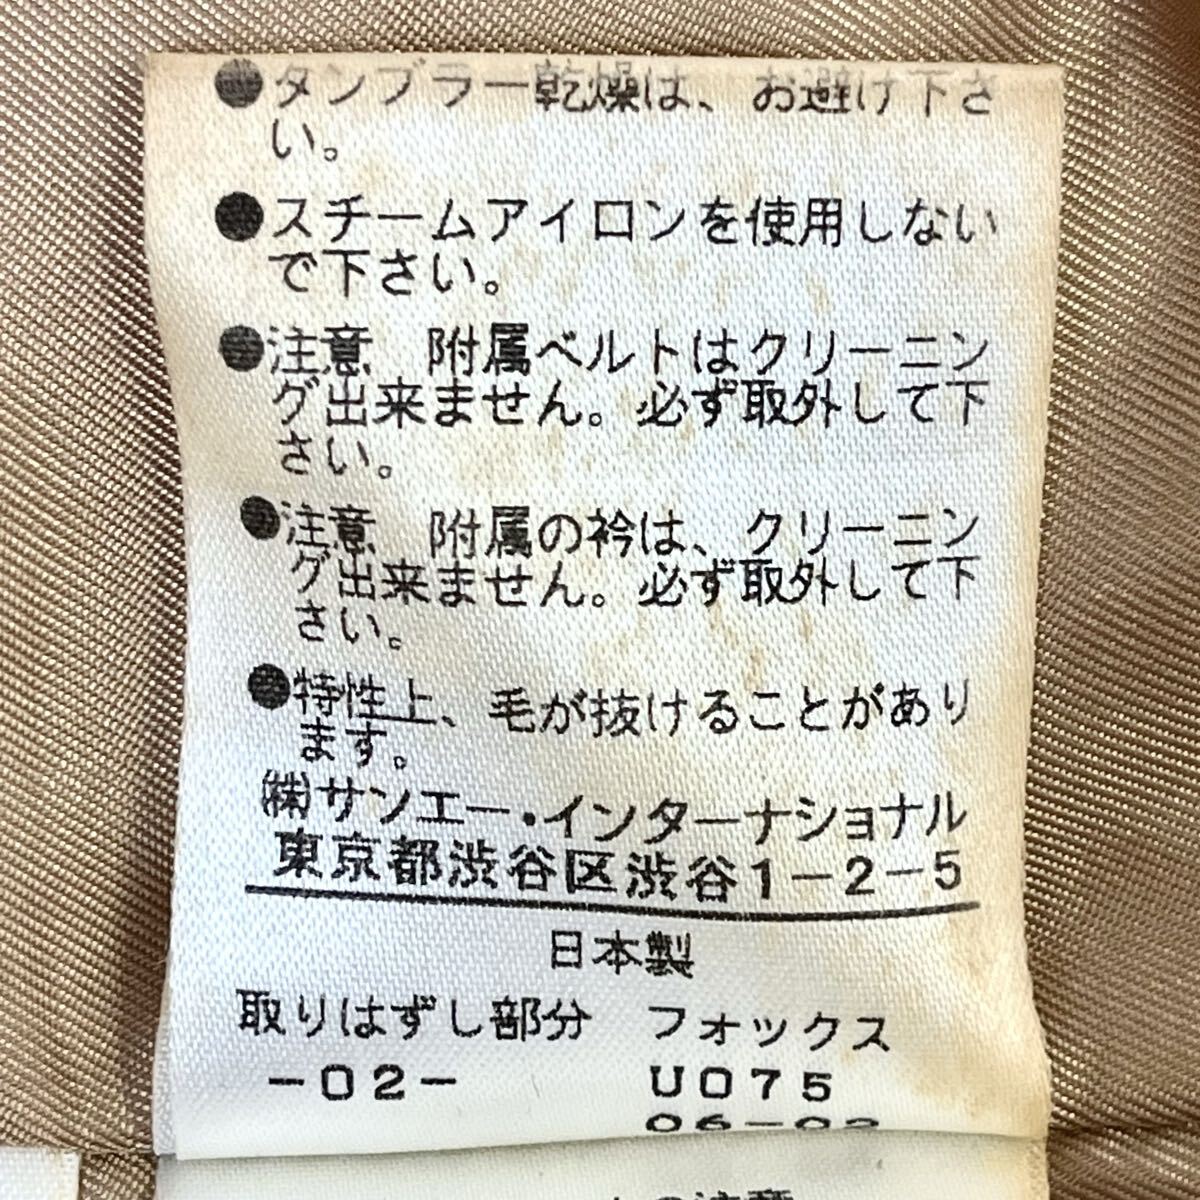 ●タンブラー乾燥は、お避け下さ
い。
●スチームアイロンを使用しない
で下さい。
●注意　附属ベルトはクリーニン
グ出来ません。必ず取外して下
さい。
●注意　附属の衿は、クリーニン
グ出来ません。必ず取外して下
さい。
●特性上、毛が抜けることがあり
ます。
㈱サンエー・インターナショナル
東京都渋谷区渋谷1-2-5
日本製
取りはずし部分　フォックス
-02-　U075
の注意